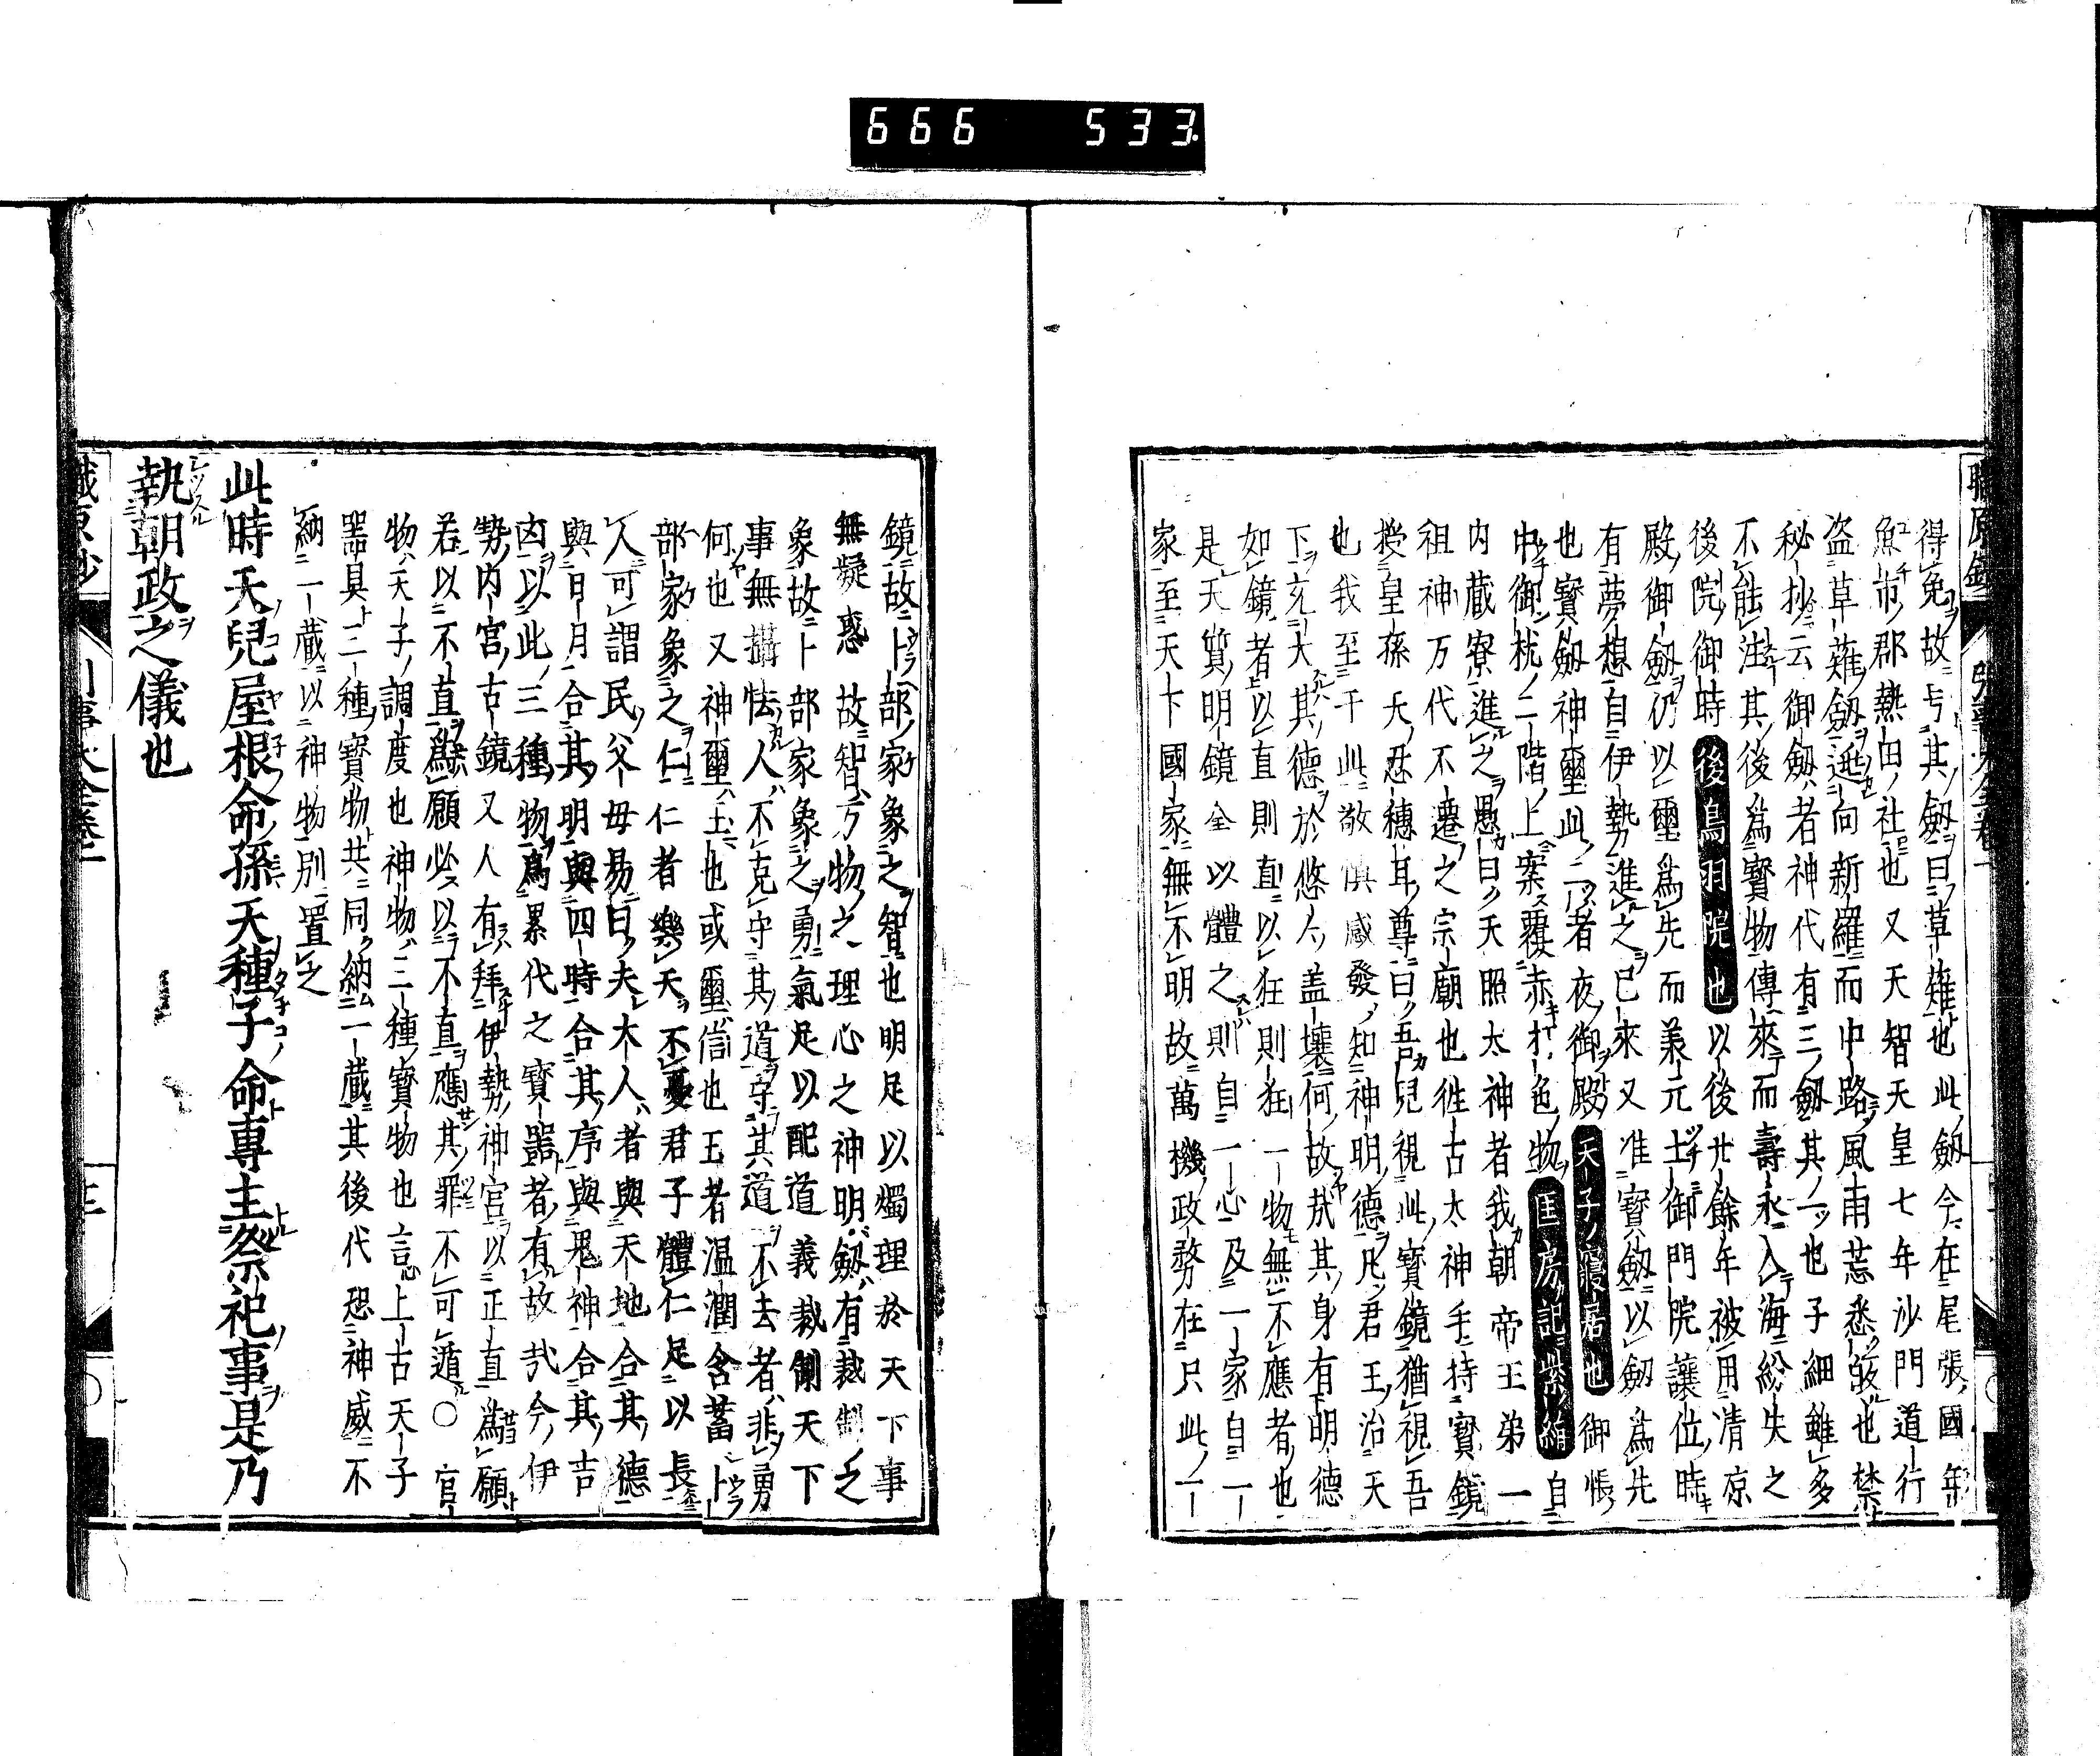 666 533
得免故号其劔曰草薙也此劔今在尾張國年
魚市郡熱田社也又天智天皇七年沙門道行
盗草薙劔逃向新羅而中路風雨荒悉皈也禁
秘抄云御劔者神代有三劔其一也子細雖多
不能注其後爲寳物傳來而壽永入海紛失之
後院御時後鳥羽院也以後廿餘年被用清凉
殿御劔仍以璽爲先而兼元土御門院讓位時
有夢想自伊勢進之已來又准寳劔以劔爲先
也寳劔神璽此二者夜御殿天子ノ寢居也御帳
中御枕ノ二階上案覆赤打色物匡房記紫絹自
内蔵寮進之愚曰天照太神者我朝帝王第一
祖神万代不遷之宗廟也徃古太神手持寳鏡
授皇孫天忍穗耳尊曰吾兒視此寳鏡猶視吾
也我至于此敬慎感發知神明德凡君王治天
下玄大其德於悠久盖壤何故㢤其身有明德
如鏡者以直則直以狂則狂一物無不應者也
是天質明鏡全以體之則自一心及一家自一
家至天下國家無不明故萬機政務在只此一
鏡故卜部家象之智也明足以燭理於天下事
無疑惑故智方物之理心之神明劔有裁制之
象故卜部家象之勇氣足以配道義裁制天下
事無懾怯人不克守其道守其道不去者非勇
何也又神璽玉也或璽信也玉者温潤含蓄卜
部家象之仁仁者樂天不憂君子體仁足以長
人可謂民父母易曰夫大人者與天地合其德
與日月合其明與四時合其序與鬼神合其吉
凶以此三種物爲累代之寳器者有故㢤今伊
勢内宮古鏡又人有拜伊勢神官以正直爲願
若以不直爲願必以不直應其罪不可遁〇官
物天子調度也神物三種寳物也言上古天子
器具三種寳物共同納一蔵其後代恐神威不
納一蔵以神物別置之
此時天兒屋根命孫天種子命專主祭祀事是乃
執朝政之儀也